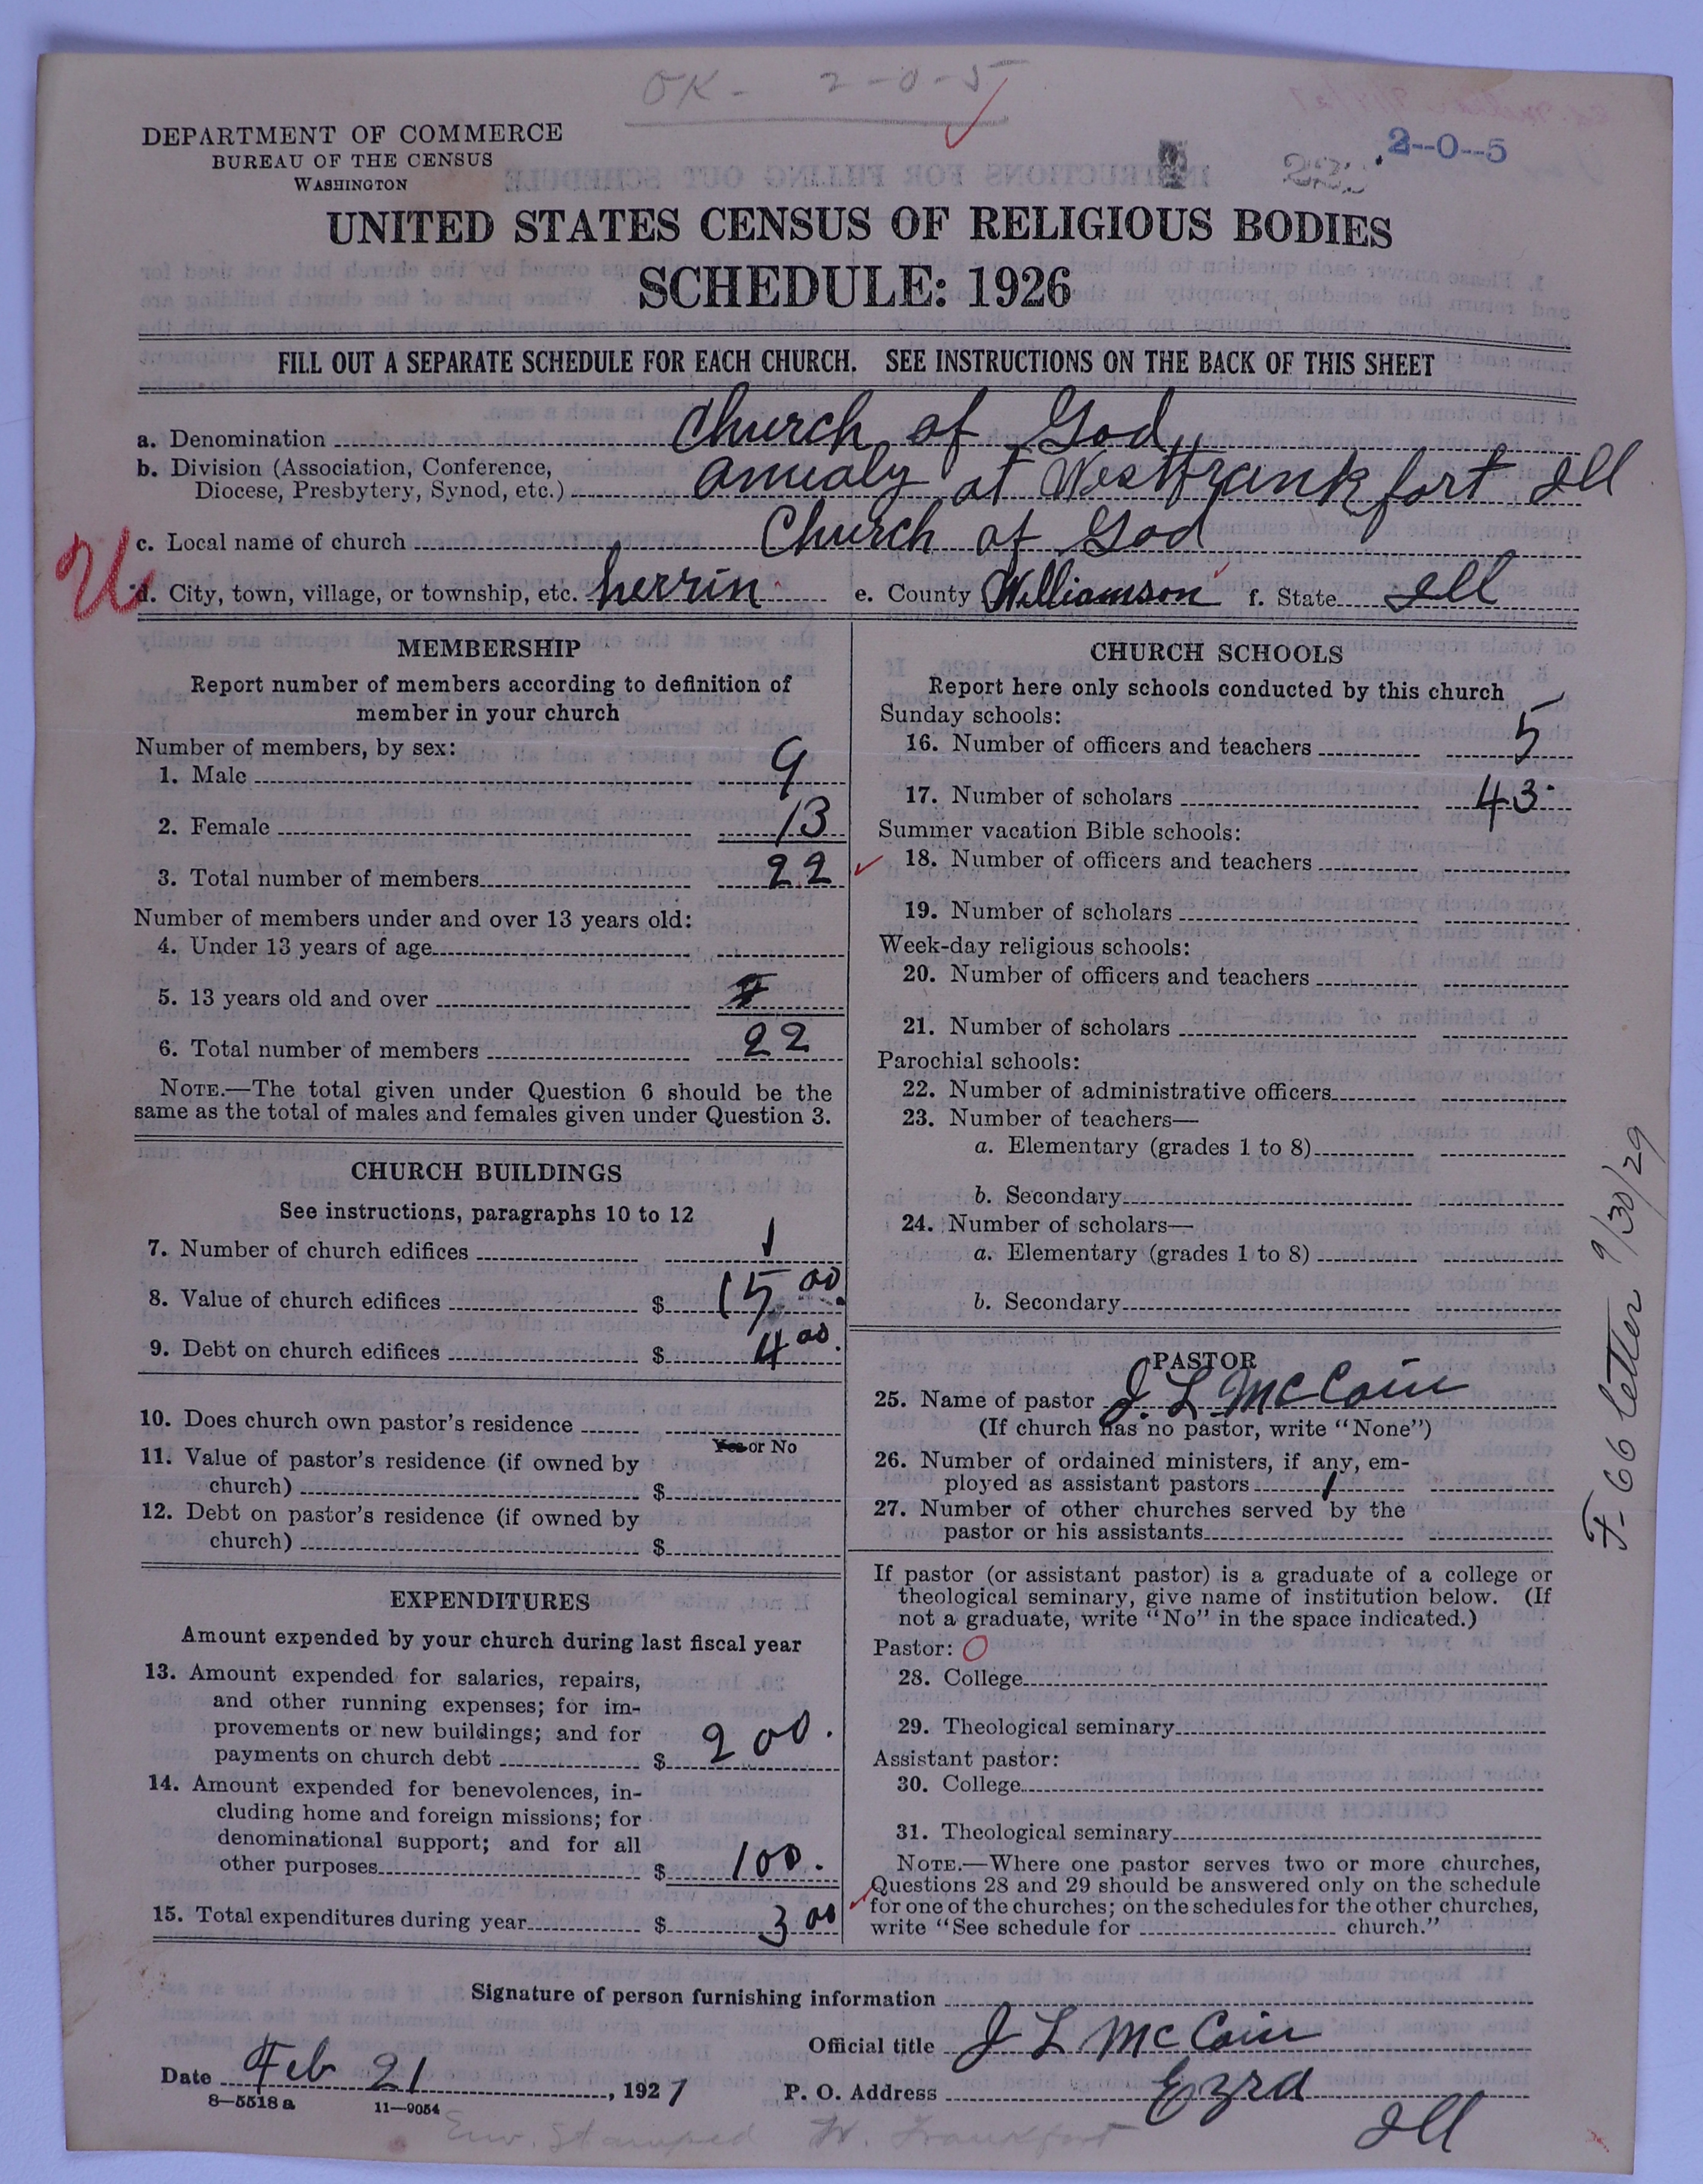 OK - 2-0-5
2--0--5
DEPARTMENT OF COMMERCE
BUREAU OF THE CENSUS
WASHINGTON
UNITED STATES CENSUS OF RELIGIOUS BODIES
SCHEDULE: 1926
FILL OUT A SEPARATE SCHEDULE FOR EACH CHURCH. SEE INSTRUCTIONS ON THE BACK OF THIS SHEET
a. Denomination Church of God
b. Division (Association, Conference,
Diocese, Presbytery, Synod, etc.) anualy at Westfrankfort Ill
c. Local name of church Church of God
d. City, town, village, or township, etc. herrin e. County Williamson f. State Ill
MEMBERSHIP
Report number of members according to definition of
member in your church
Number of members, by sex:
1. Male 9
2. Female 13
3. Total number of members 22
Number of members under and over 13 years old:
4. Under 13 years of age
5. 13 years old and over
6. Total number of members 22
NOTE.—The total given under Question 6 should be the
same as the total of males and females given under Question 3.
CHURCH BUILDINGS
See instructions, paragraphs 10 to 12
7. Number of church edifices 1
8. Value of church edifices $ 1500.
9. Debt on church edifices $ 400.
10. Does church own pastor's residence
Yes or No
11. Value of pastor's residence (if owned by
church) $
12. Debt on pastor's residence (if owned by
church) $
EXPENDITURES
Amount expended by your church during last fiscal year
13. Amount expended for salaries, repairs,
and other running expenses; for im-
provements or new buildings; and for
payments on church debt $ 200.
14. Amount expended for benevolences, in-
cluding home and foreign missions; for
denominational support; and for all
other purposes $ 100.
15. Total expenditures during year $ 300
CHURCH SCHOOLS
Report here only schools conducted by this church
Sunday schools:
16. Number of officers and teachers 5
17. Number of scholars 43
Summer vacation Bible schools:
18. Number of officers and teachers
19. Number of scholars
Week-day religious schools:
20. Number of officers and teachers
21. Number of scholars
Parochial schools:
22. Number of administrative officers
23. Number of teachers—
a. Elementary (grades 1 to 8)
b. Secondary
24. Number of scholars—
a. Elementary (grades 1 to 8)
b. Secondary
PASTOR
25. Name of pastor J. L McCain
(If church has no pastor, write "None")
26. Number of ordained ministers, if any, em-
ployed as assistant pastors 1
27. Number of other churches served by the
pastor or his assistants
If pastor (or assistant pastor) is a graduate of a college or
theological seminary, give name of institution below. (If
not a graduate, write "No" in the space indicated.)
Pastor: O
28. College
29. Theological seminary
Assistant pastor:
30. College
31. Theological seminary
NOTE.—Where one pastor serves two or more churches,
Questions 28 and 29 should be answered only on the schedule
for one of the churches; on the schedules for the other churches,
write "See schedule for church."
F-66 letter 9/30/29
Signature of person furnishing information
Official title J L McCain
Date Feb 21, 1927 P. O. Address Ezra
Ill
8—5518 a 11—9054
Env. Stamped W. Frankfort